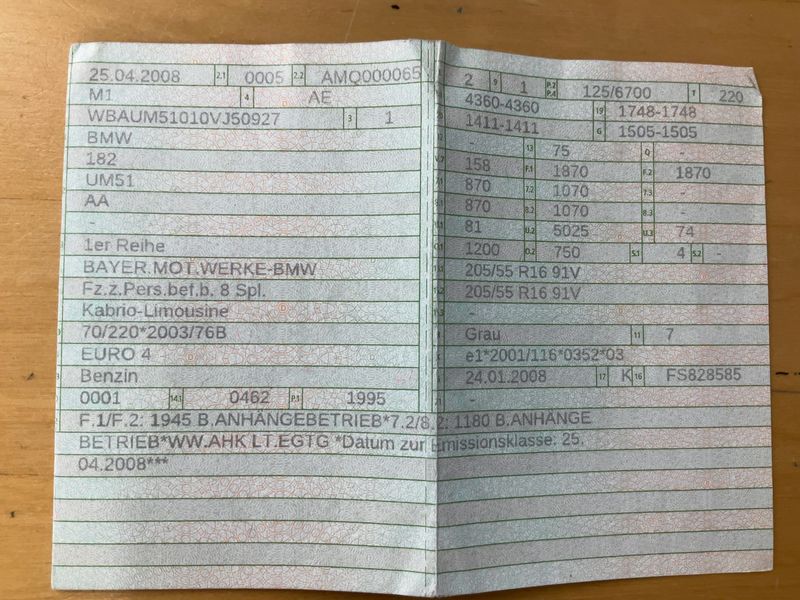 25.04.2008 2.1 0005 2.2 AMQ000065
M1 4 AE
WBAUM51010VJ50927 3 1
BMW
182
UM51
AA
-
1er Reihe
BAYER.MOT.WERKE-BMW
Fz.z.Pers.bef.b. 8 Spl.
Kabrio-Limousine
70/220*2003/76B
EURO 4
Benzin
0001 14.1 0462 P.1 1995
F.1/F.2: 1945 B.ANHÄNGEBETRIEB*7.2/8.2: 1180 B.ANHÄNGE
BETRIEB*WW.AHK LT.EGTG *Datum zur Emissionsklasse: 25.
04.2008***
2 9 1 P.2 P.4 125/6700 T 220
4360-4360 19 1748-1748
1411-1411 G 1505-1505
- 13 75 Q -
158 F.1 1870 F.2 1870
870 7.2 1070 7.3 -
870 8.2 1070 8.3 -
81 U.2 5025 U.3 74
1200 O.2 750 S.1 4 S.2 -
205/55 R16 91V
205/55 R16 91V
-
Grau 11 7
e1*2001/116*0352*03
24.01.2008 17 K 16 FS828585
-